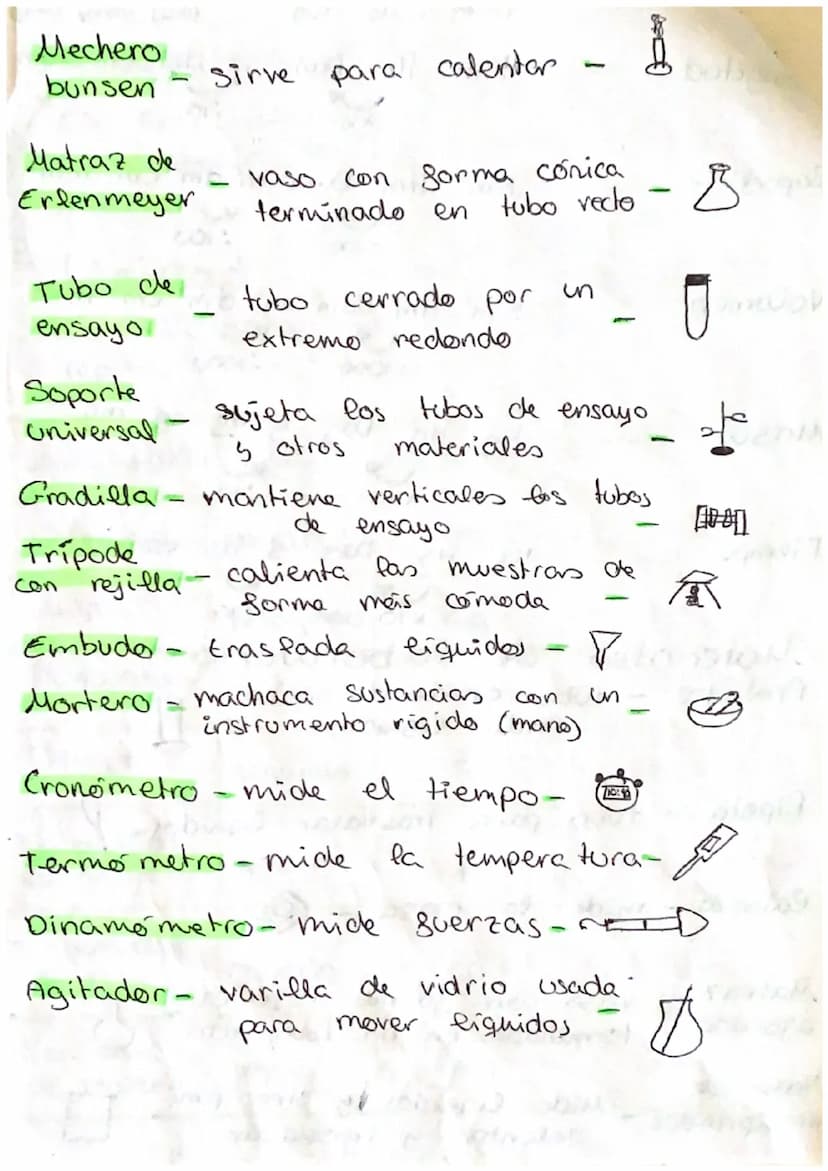 Mechero
bunsen - sirve para calentar -
Matraz de
Erlenmeyer - vaso con forma cónica -
terminado en tubo recto
Tubo de
ensayo - tubo cerrado por un -
extremo redondo
Soporte
universal - sujeta los tubos de ensayo -
y otros materiales
Gradilla - mantiene verticales los tubos
de ensayo -
Trípode
con rejilla - calienta las muestras de
forma más cómoda -
Embudo - traslada líquidos -
Mortero - machaca sustancias con un -
instrumento rígido (mano)
Cronómetro - mide el tiempo -
Termómetro - mide la temperatura -
Dinamómetro - mide fuerzas -
Agitador - varilla de vidrio usada
para mover líquidos -